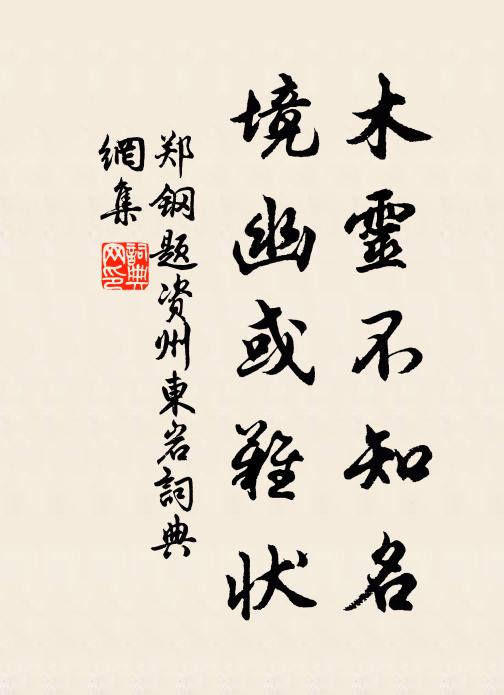 木靈不知名
境幽或難狀
郑鋼题资州東岩詞典
網集
詞典网印